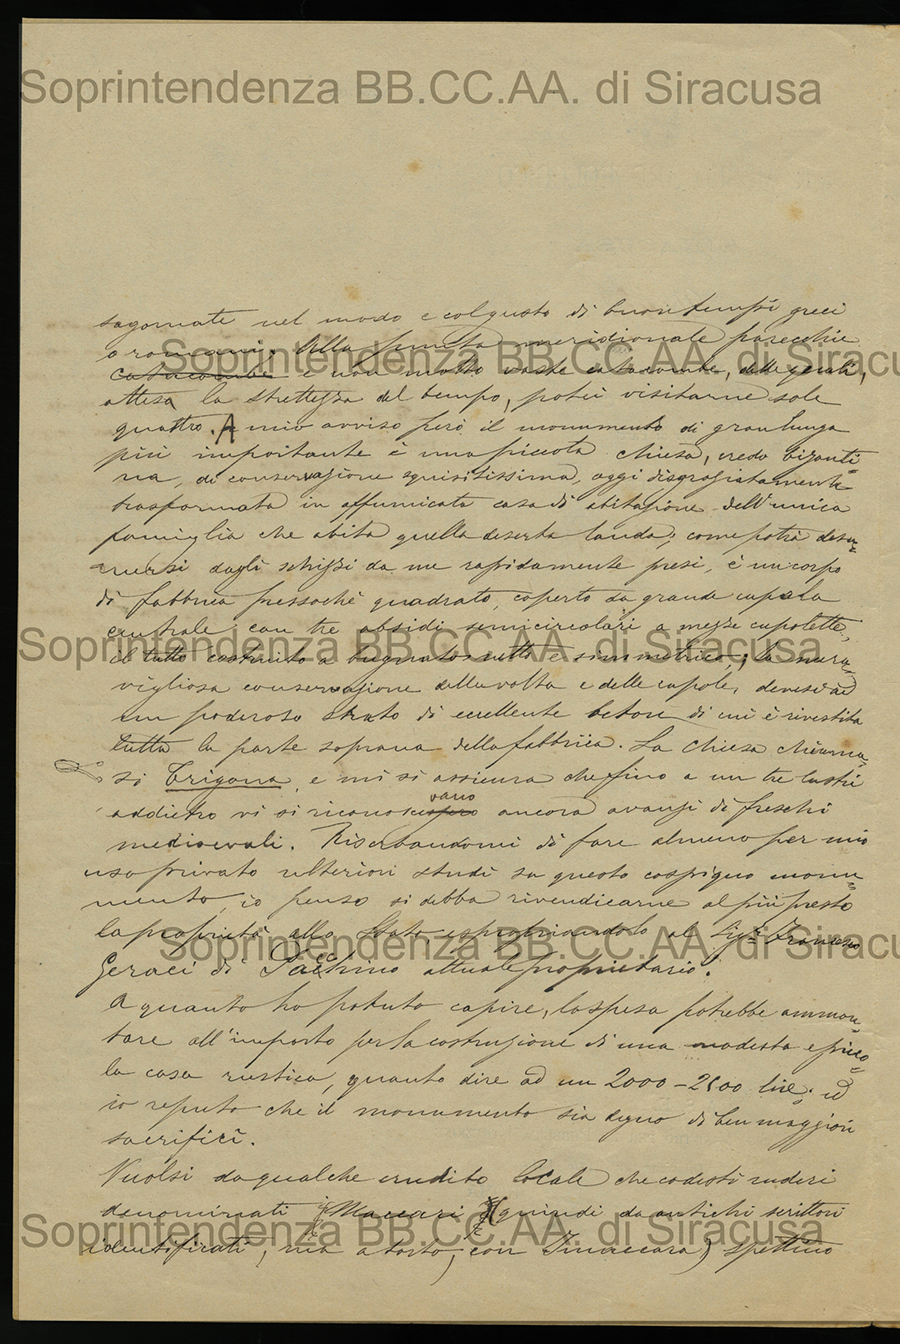 Soprintendenza BB.CC.AA. di Siracusa
sagomate nel modo e col gusto di buoni tempi greci
o romani. Alla punta meridionale parecchie
Soprintendenza BB.CC.AA. di Siracusa
catacombe non molto vaste catacombe, delle quali,
attesa la strettezza del tempo, potei visitarne sole
quattro. A mio avviso però il monumento di gran lunga
più importante è una piccola chiesa, credo bizanti=
na, di conservazione squisitissima, oggi disgraziatamente
trasformata in affumicata casa di abitazione dell'unica
famiglia che abita quella deserta landa; come potrà desu=
mersi dagli schizzi da me rapidamente presi, è un corpo
di fabbrica pressochè quadrato, coperto da grande cupola
centrale, con tre absidi semicircolari a mezze cupolette,
Soprintendenza BB.CC.AA. di Siracusa
il tutto costruito a bugnatos netto e simmetrico; la mera=
vigliosa conservazione della volta e delle cupole, devesi ad
un poderoso strato di eccellente beton di cui è rivestita
tutta la parte soprana della fabbrica. La chiesa chiama=
si Trigona, e mi si assicura che fino a un tre lustri
addietro vi si riconoscevano ancora avanzi di freschi
medioevali. Riserbandomi di fare almeno per mio
uso privato ulteriori studi su questo cospiquo monu=
mento, io penso si debba rivendicarne al più presto
la proprietà allo Stato, espropriandolo al Sigr. Francesco
Soprintendenza BB.CC.AA. di Siracusa
Geraci di Pacchino attuale proprietario.
A quanto ho potuto capire, la spesa potrebbe ammon=
tare all'importo per la costruzione di una modesta e picco=
la casa rustica, quanto dire ad un 2000-2500 lire; ed
io reputo che il monumento sia degno di ben maggiori
sacrifici.
Vuolsi da qualche erudito locale che codesti ruderi
denominati i Maccari (quindi da antichi scrittori
Soprintendenza BB.CC.AA. di Siracusa
identificati, ma a torto, con Imaccara) spettino